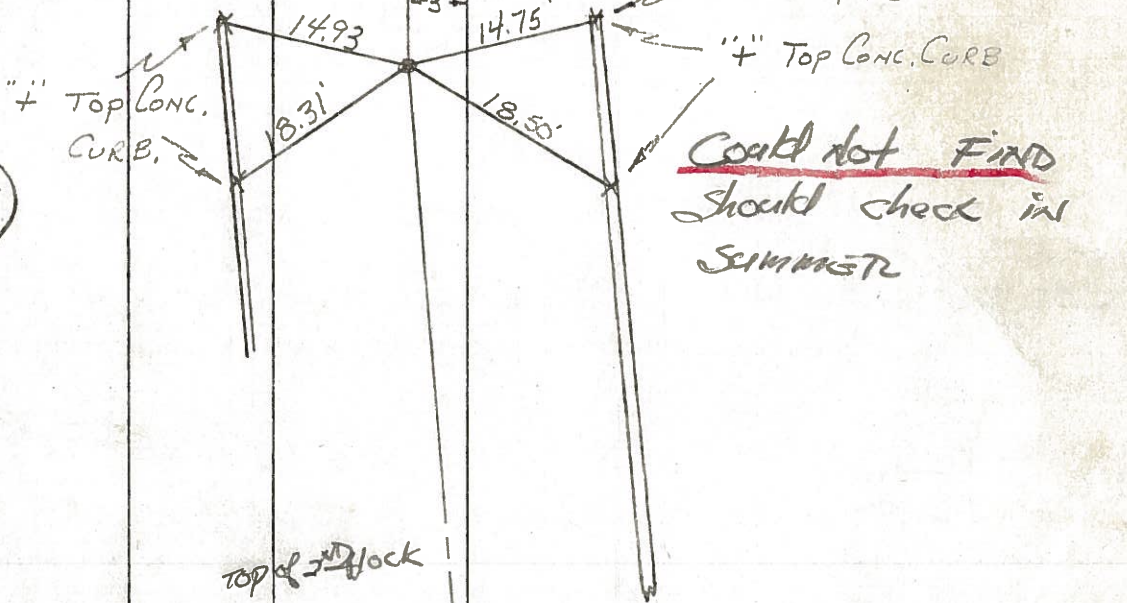 3
14.93
14.75'
"+" Top Conc. Curb
"+" Top Conc.
Curb.
18.31'
18.50'
Could not Find
Should check in
summer
Top of 2nd